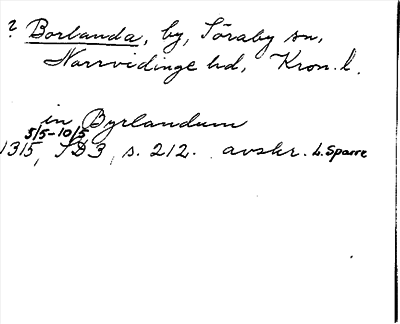 ? Borlanda, by, Söraby sn,
Norrvidinge hd, Kron. l.
in Byrlandum
5/5-10/5
1315, SD3, s. 212. avskr. L. Sparre